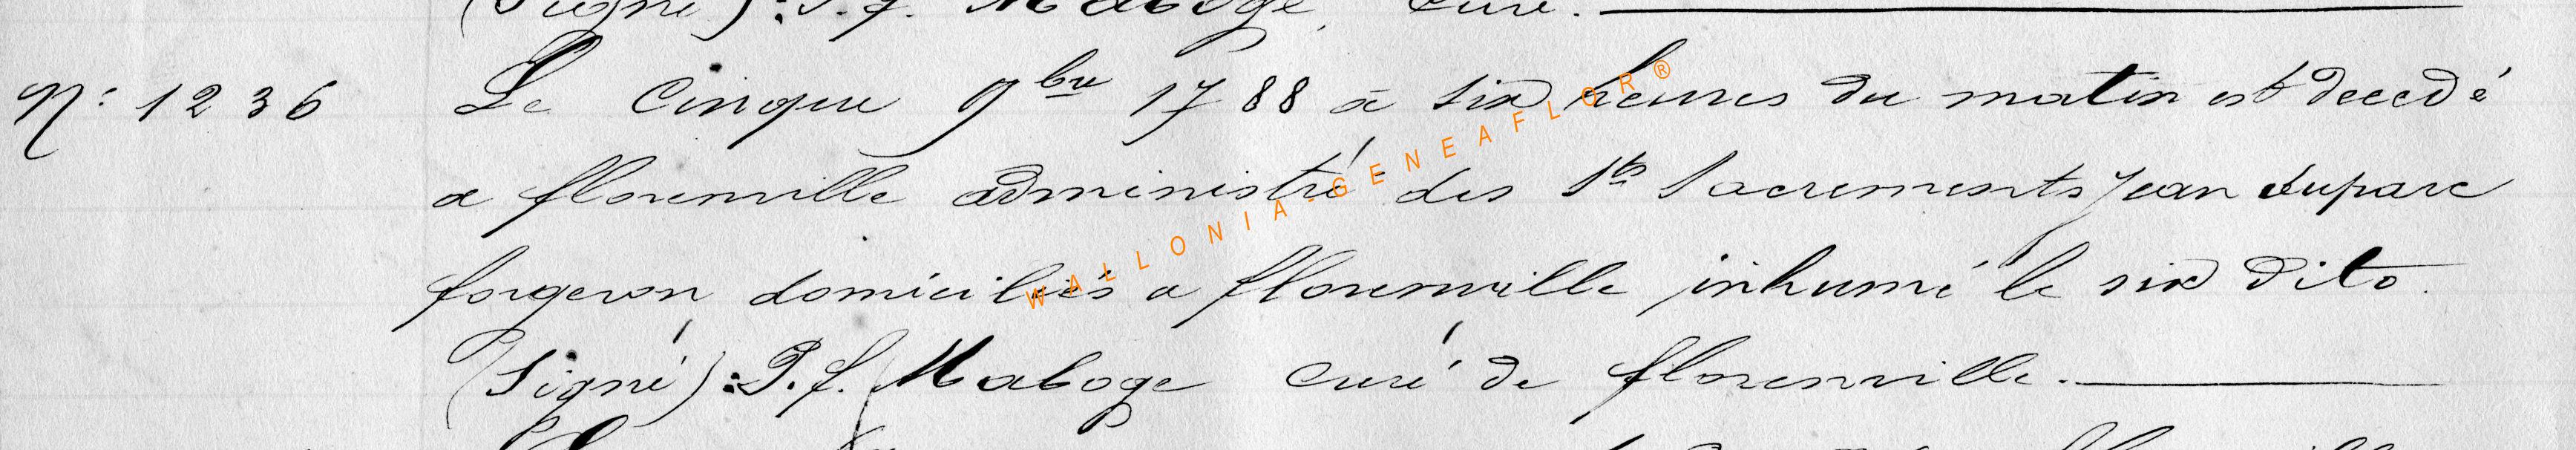 (Signé): P.f. Maboge, Curé.
N: 1236 Le Cinque 9bre 1788 a six heures du matin est decedé
a florenville administré des Sts Sacrements Jean duparc
forgeron domiciliés a florenville inhumé le six dito.
(Signé): P.f. Maboge Curé de florenville.
WALLONIA-GENEAFLOR®